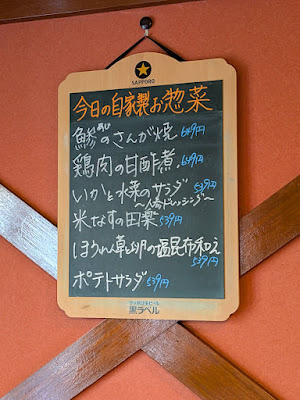 SAPPORO
今日の自家製お惣菜
あじ
鯵のさんが焼 649円
鶏肉の甘酢煮 649円
いかと水菜のサラダ 539円
～人参ドレッシング～
米なすの田楽 539円
ほうれん草の塩昆布和え
539円
ポテトサラダ 539円
サッポロ生ビール
黒ラベル